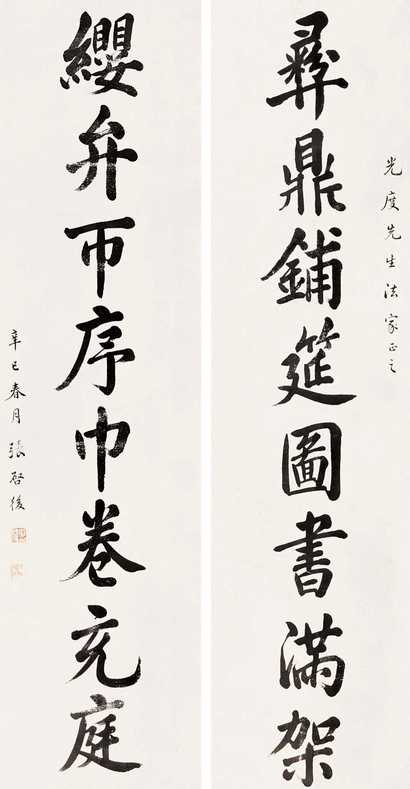 光度先生法家正之
彝鼎鋪筵圖書滿架
纓弁帀序巾卷充庭
辛巳春月張啓後